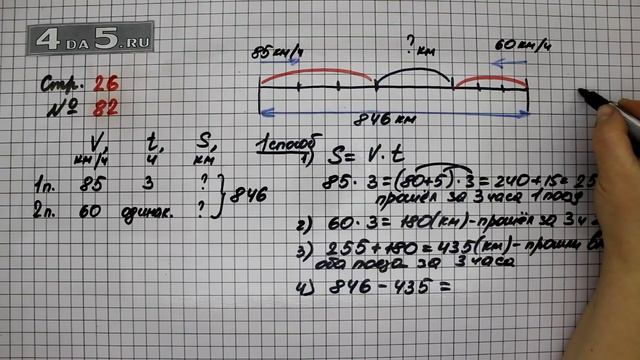 4DA5.RU
85км/ч ? км 60км/ч
846 км
Стр. 26
№ 82
V, t, S,
км/ч ч км
1п. 85 3 ?
2п. 60 одинак. ?
} 846
1 способ
1) S = V · t
85 · 3 = (80+5) · 3 = 240 + 15 = 25
прошёл за 3 часа 1 поезд
2) 60 · 3 = 180(км) - прошёл за 3 ч
3) 255 + 180 = 435(км) - прошли
оба поезда за 3 часа
4) 846 - 435 =